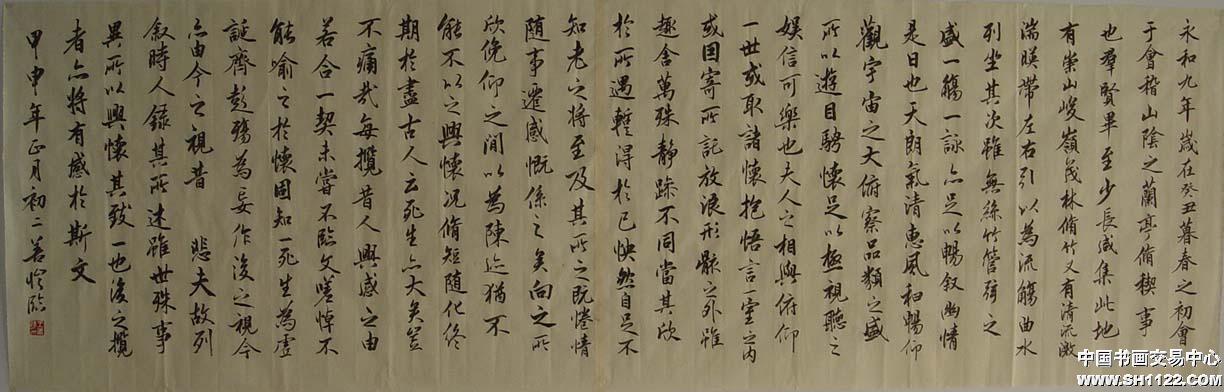 永和九年歲在癸丑暮春之初會
于會稽山陰之蘭亭脩稧事
也羣賢畢至少長咸集此地
有崇山峻嶺茂林脩竹又有清流激
湍暎帶左右引以為流觴曲水
列坐其次雖無絲竹管弦之
盛一觴一詠亦足以暢叙幽情
是日也天朗氣清惠風和暢仰
觀宇宙之大俯察品類之盛
所以遊目騁懷足以極視聽之
娛信可樂也夫人之相與俯仰
一世或取諸懷抱悟言一室之內
或因寄所託放浪形骸之外雖
趣舍萬殊靜躁不同當其欣
於所遇暫得於己怏然自足不
知老之將至及其所之既惓情
随事遷感慨係之矣向之所
欣俛仰之間以為陳迹猶不
能不以之興懷况脩短随化終
期於盡古人云死生亦大矣豈
不痛哉每攬昔人興感之由
若合一契未嘗不臨文嗟悼不
能喻之於懷固知一死生為虛
誕齊彭殤為妄作後之視今
亦由今之視昔 悲夫故列
叙時人錄其所述雖世殊事
異所以興懷其致一也後之攬
者亦將有感於斯文
甲申年正月初二善臨
中国书画交易中心
www.SH1122.com